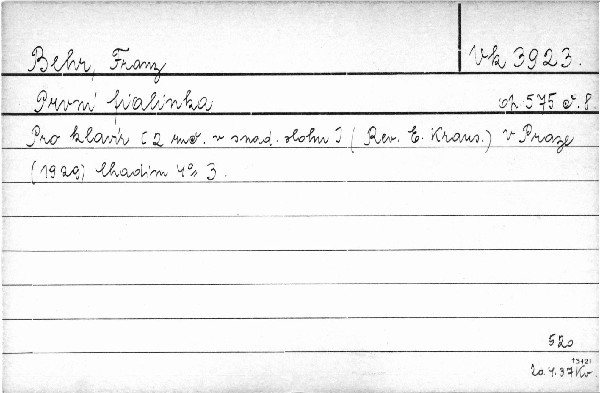 Behr, Franz Vk 3923.
První fialinka op. 575 č. 8.
Pro klavír [2 ruč. v snad. slohu] (Rev. E. Kraus.) v Praze
(1929) Chadim 4° 3.
520
13421
20.4.37 Kv.